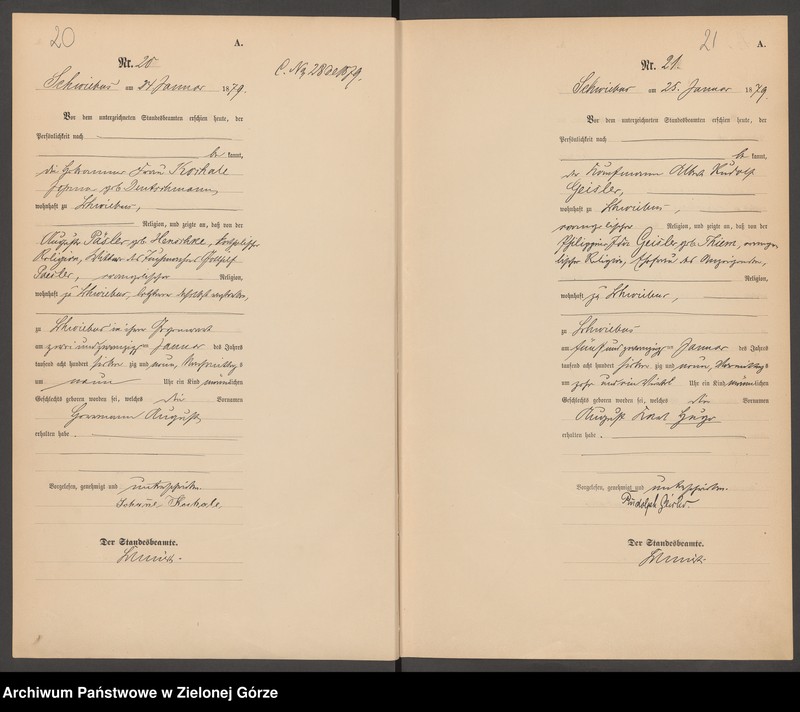 20
A.
Nr. 20
C. No 28 de 1879.
Schwiebus am 24 Januar 1879.
Vor dem unterzeichneten Standesbeamten erschien heute, der
Persönlichkeit nach
be kannt,
die Hebamme Frau Koschale
geb. Deutschmann,
wohnhaft zu Schwiebus,
Religion, und zeigte an, daß von der
Auguste Päsler geb. Henschke, katholischer
Religion, Wittwe des Gottlieb
Paesler, evangelischer Religion,
wohnhaft zu Schwiebus,
zu Schwiebus in ihrer Gegenwart
am zwei und zwanzigsten Januar des Jahres
tausend acht hundert sieben zig und neun, Vormittags
um neun Uhr ein Kind männlichen
Geschlechts geboren worden sei, welches die Vornamen
Herrmann August
erhalten habe.
Vorgelesen, genehmigt und unterschrieben.
Koschale
Der Standesbeamte.
21
A.
Nr. 21.
Schwiebus am 25. Januar 1879.
Vor dem unterzeichneten Standesbeamten erschien heute, der
Persönlichkeit nach
be kannt,
der Kaufmann Albert Rudolf
Geisler,
wohnhaft zu Schwiebus,
evangelischer Religion, und zeigte an, daß von der
Philippine Ida Geisler geb. Thiem, evange-
lischer Religion, Ehefrau des Anzeigenden,
Religion,
wohnhaft zu Schwiebus,
zu Schwiebus
am fünf und zwanzigsten Januar des Jahres
tausend acht hundert sieben zig und neun, Vormittags
um zehn und ein Viertel Uhr ein Kind männlichen
Geschlechts geboren worden sei, welches die Vornamen
August Karl Hugo
erhalten habe.
Vorgelesen, genehmigt und unterschrieben.
Rudolph Geisler.
Der Standesbeamte.
Archiwum Państwowe w Zielonej Górze